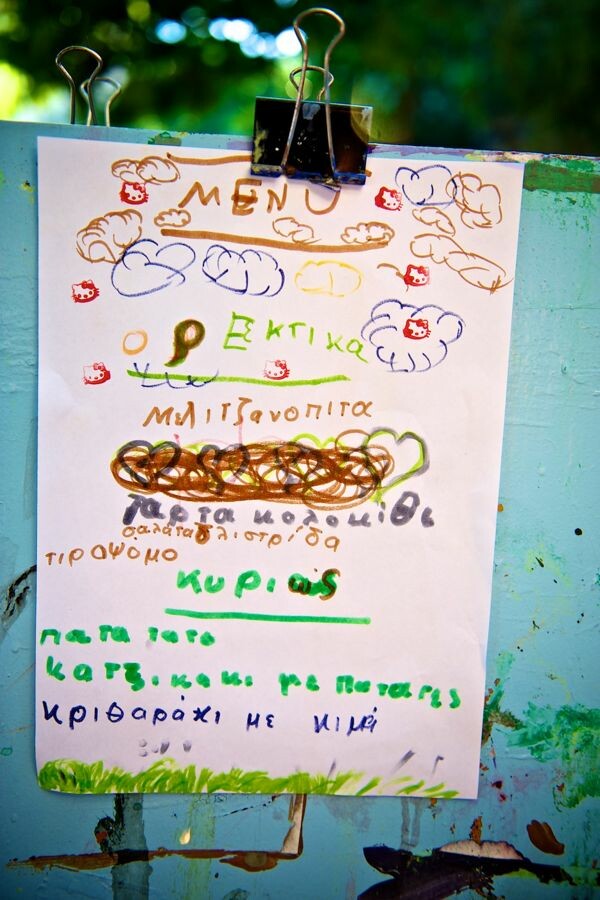 MENU
Εκτικα
Μελιτζανοπιτα
ταρτα κολοκιθι
σαλατα γλιστρίδα
τιροψομο
κυριως
πατατατο
κατζικακι με πατατες
κριθαράκι με κιμά